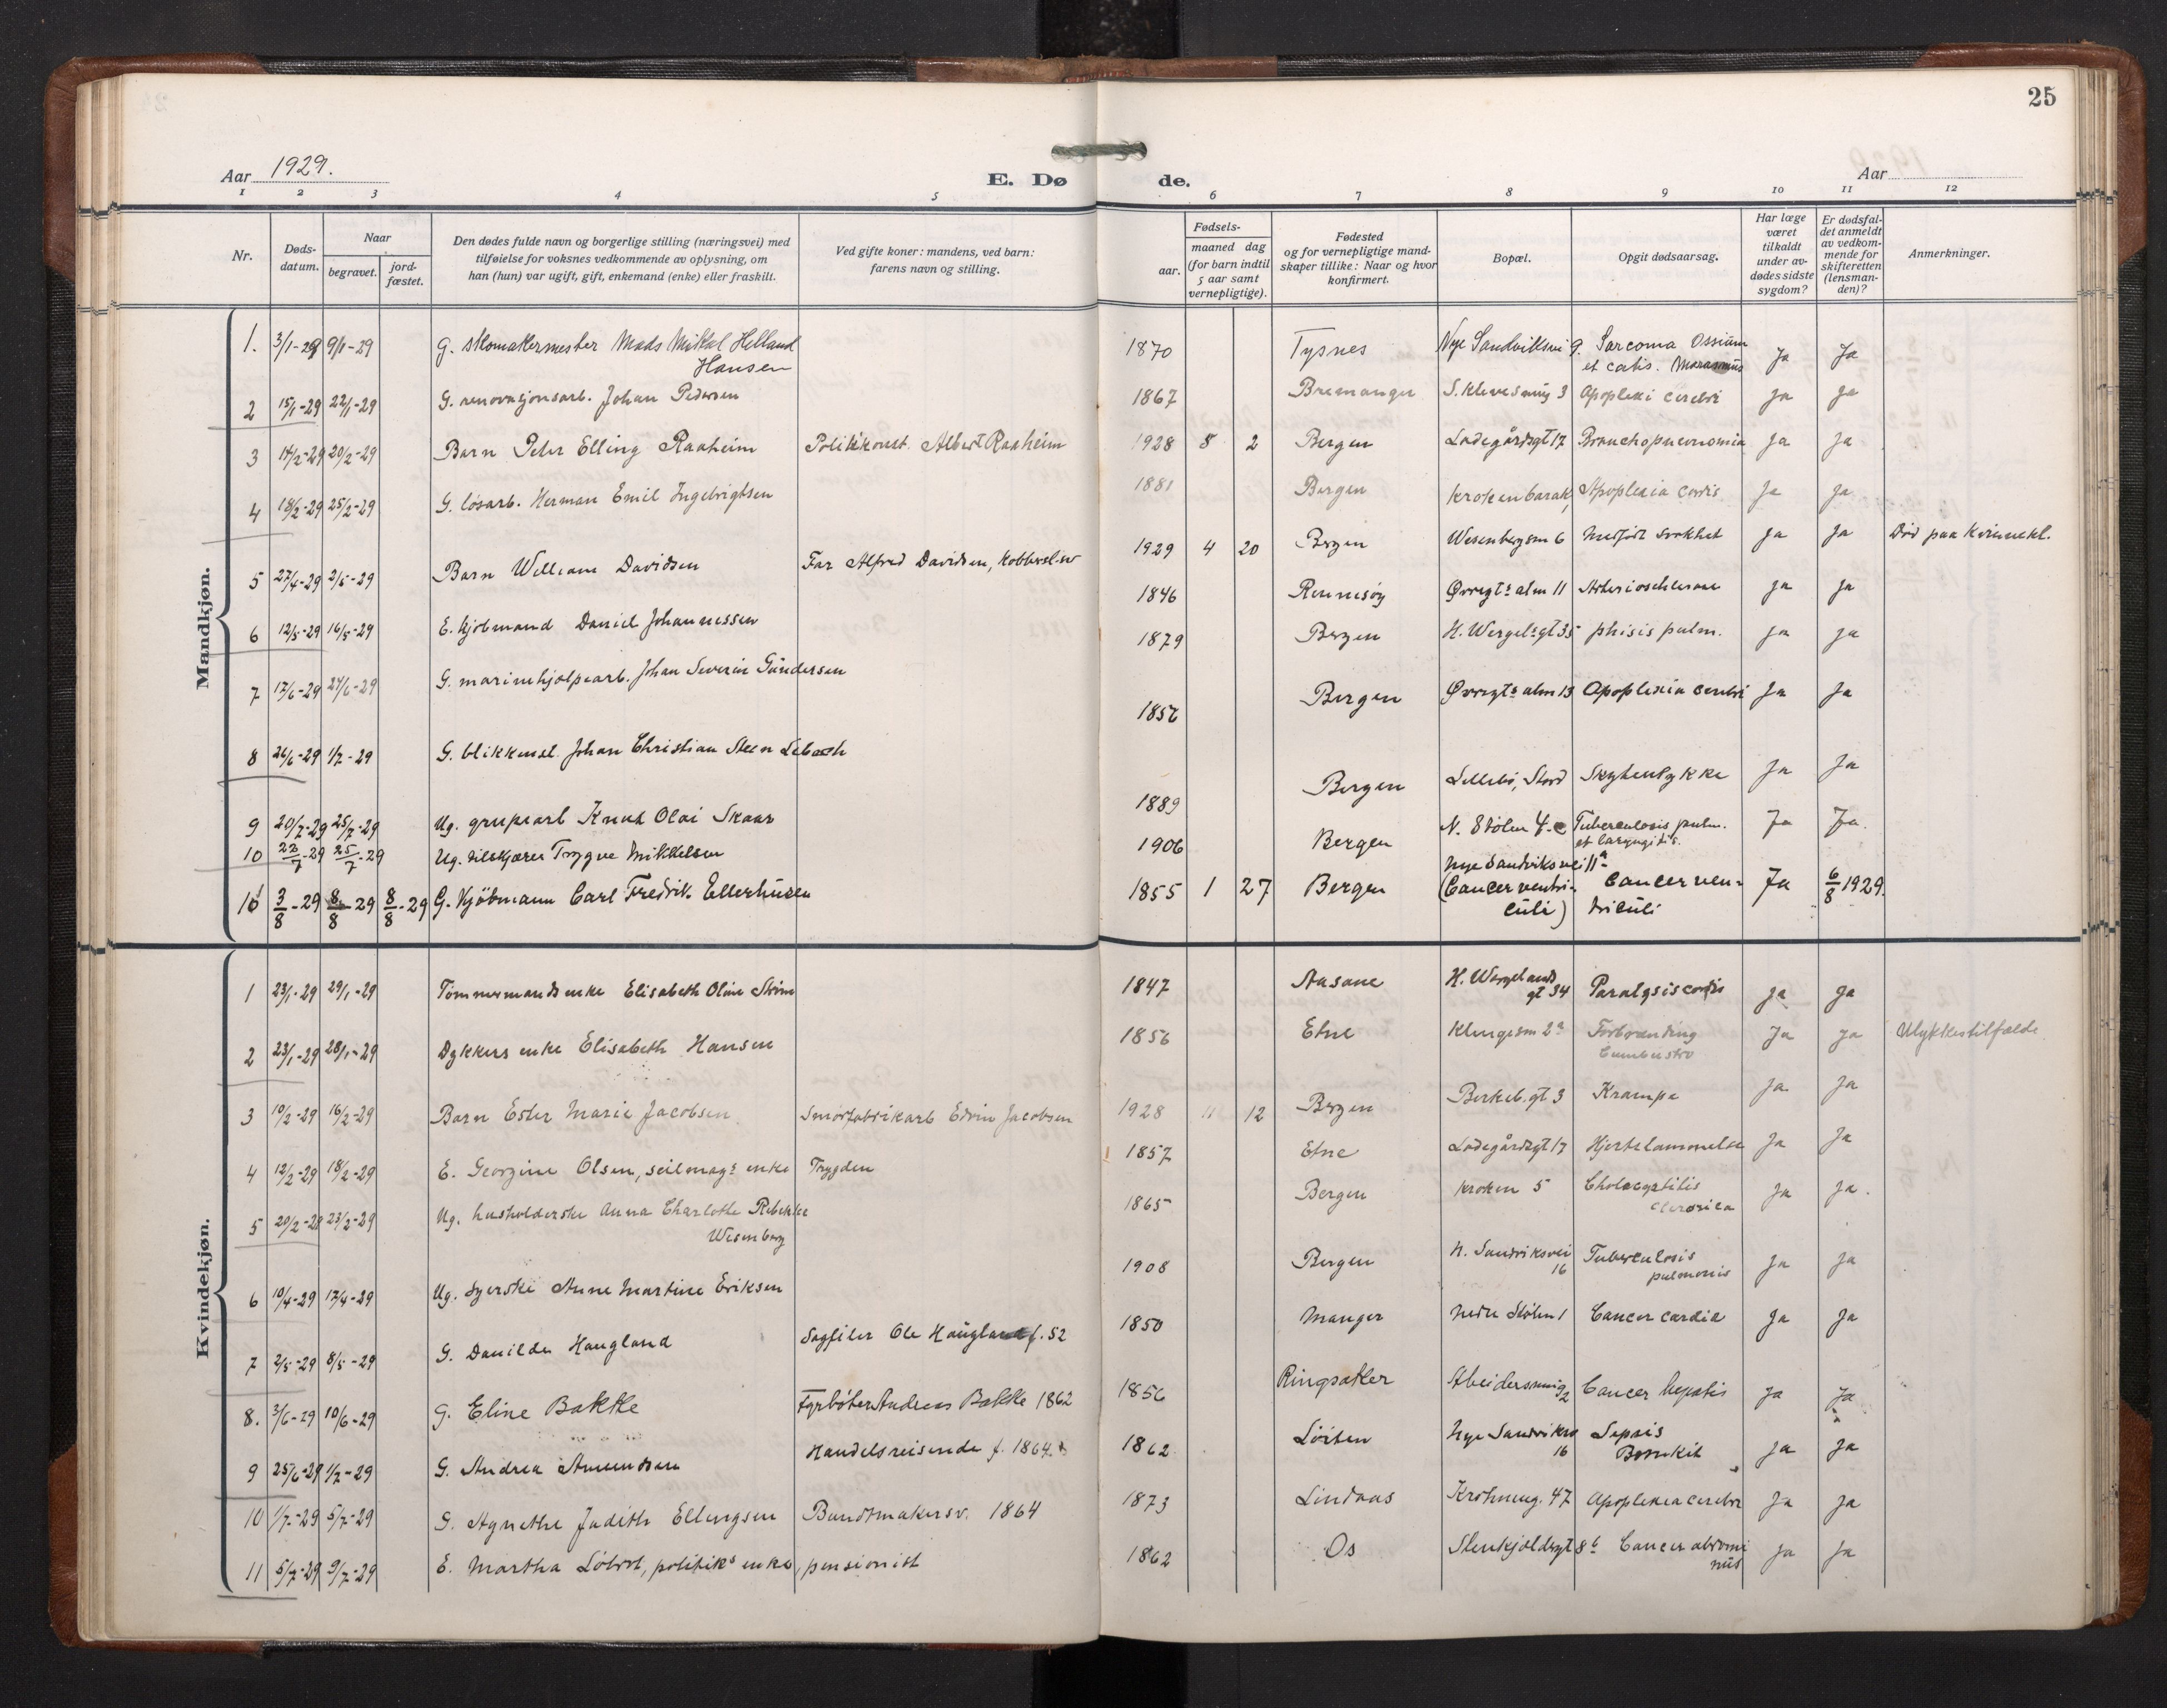 25
Aar 1929.
E. Dø de.
Aar
1 2 3 4 5 6 7 8 9 10 11 12
Nr.
Døds-
datum.
Naar
begravet.
jord-
fæstet.
Den dødes fulde navn og borgerlige stilling (næringsvei) med
tilføielse for voksnes vedkommende av oplysning, om
han (hun) var ugift, gift, enkemand (enke) eller fraskilt.
Ved gifte koner: mandens, ved barn:
farens navn og stilling.
Fødsels-
aar.
maaned dag
(for barn indtil
5 aar samt
vernepligtige).
Fødested
og for vernepligtige mand-
skaper tillike: Naar og hvor
konfirmert.
Bopæl.
Opgit dødsaarsag.
Har læge
været
tilkaldt
under av-
dødes sidste
sygdom?
Er dødsfal-
det anmeldt
av vedkom-
mende for
skifteretten
(lensman-
den)?
Anmerkninger.
Mandkjøn.
1. 3/1-29 9/1-29 G. skomakermester Mads Mikal Helland
Hansen 1870 Tysnes Nye Sandviksvei 9. Sarcoma Ossium
et cutis. Marasmus Ja Ja
2 15/1-29 22/1-29 G. renovasjonsarb. Johan Pedersen 1867 Bremanger S. Klevesmug 3 Apoplexi cerebri Ja Ja
3 14/2-29 20/2-29 Barn Peter Elling Raaheim Politikonst. Albert Raaheim 1928 8 2 Bergen Ladegårdsgt 17 Bronchopneunomia Ja Ja
4 18/2-29 25/2-29 G. løsarb. Herman Emil Ingebrigtsen 1881 Bergen Kroken barak, Apoplexia cordis Ja Ja
5 27/4-29 2/5-29 Barn William Davidsen Far Alfred Davidsen, Kobbersl.sv 1929 4 20 Bergen Wesenbergsm 6 Medfødt svakhet Ja Ja Død paa Kvinnekl.
6 12/5-29 16/5-29 E. kjøbmand Daniel Johannessen 1846 Rennesøy Øvregts alm 11 Arteriosclerose Ja Ja
7 17/6-29 24/6-29 G. marinehjelpearb. Johan Severin Gundersen 1879 Bergen H. Wergel.s gt 35 phisis pulm. Ja Ja
8 26/6-29 1/7-29 G. blikkensl. Johan Christian Steen Sebach 1856 Bergen Øvregts alm 13 Apoplexia cerebri Ja Ja
9 20/7-29 25/7-29 Ug. grupearb Knut Olai Skaar 1889 Bergen Lillebø, Stord Ja Ja
10 22/7-29 25/7-29 Ug. tilskjærer Trygve Mikkelsen 1906 Bergen N. Stølen 4.c Tuberculosis pulm.
et laryngitis. Ja Ja.
11 3/8-29 8/8-29 8/8-29 G. Kjöbmann Carl Fredrik Ellerhusen 1855 1 27 Bergen Nye Sandviksvei 11a
(Cancer ventri-
culi) Cancer ven-
triculi Ja 6/8 1929.
Kvindekjøn.
1 23/1-29 29/1-29 Tømmermands enke Elisabeth Oline Strøm 1847 Aasane H. Wergelands
gt 34 Paralysis cordis Ja Ja
2 23/1-29 28/1-29 Dykkers enke Elisabeth Hansen 1856 Etne Klingesm 2a Forbrænding
Cumbustio Ja Ja Ulykkestilfælde
3 10/2-29 16/2-29 Barn Ester Marie Jacobsen Smørfabrikarb Edvin Jacobsen 1928 11 12 Bergen Berkeb. gt 3 Krampe Ja Ja
4 12/2-29 18/2-29 E. Georgine Olsen, seilmag.s enke Trygden 1857 Etne Ladegårdsgt 17 Hjertelammelse Ja Ja
5 20/2-29 23/2-29 Ug. husholderske Anna Charlotte Rebekke
Wesenberg 1865 Bergen Kroken 5 Cholecystitis Ja Ja.
6 10/4-29 17/4-29 Ug. Syerske Anne Martine Eriksen 1908 Bergen N. Sandviksvei
16 Tuberculosis
pulmonis Ja Ja
7 2/5-29 8/5-29 G. Danilde Haugland Sagfiler Ole Haugland f. 52 1850 Manger Nedre Stølen 1 Cancer cardia Ja Ja
8. 3/6-29 10/6-29 G. Eline Bakke Fyrbøter Andreas Bakke 1862 1856 Ringsaker Abeidersmug 2 Cancer hepatis Ja Ja
9 25/6-29 1/7-29 G. Andrea Amundsen Handelsreisende f. 1864. 1862 Löiten Nye Sandviksv
16 Sepsis Ja Ja
10 1/7-29 5/7-29 G. Agnethe Judith Ellingsen Buntmakersv. 1864 1873 Lindaas Krohneng. 47 Apoplexia cerebri Ja Ja
11 5/7-29 9/7-29 E. Martha , politik.s enke, pensionist 1862 Os Stenkjeldsgt 8b Cancer abdomi
nus Ja Ja